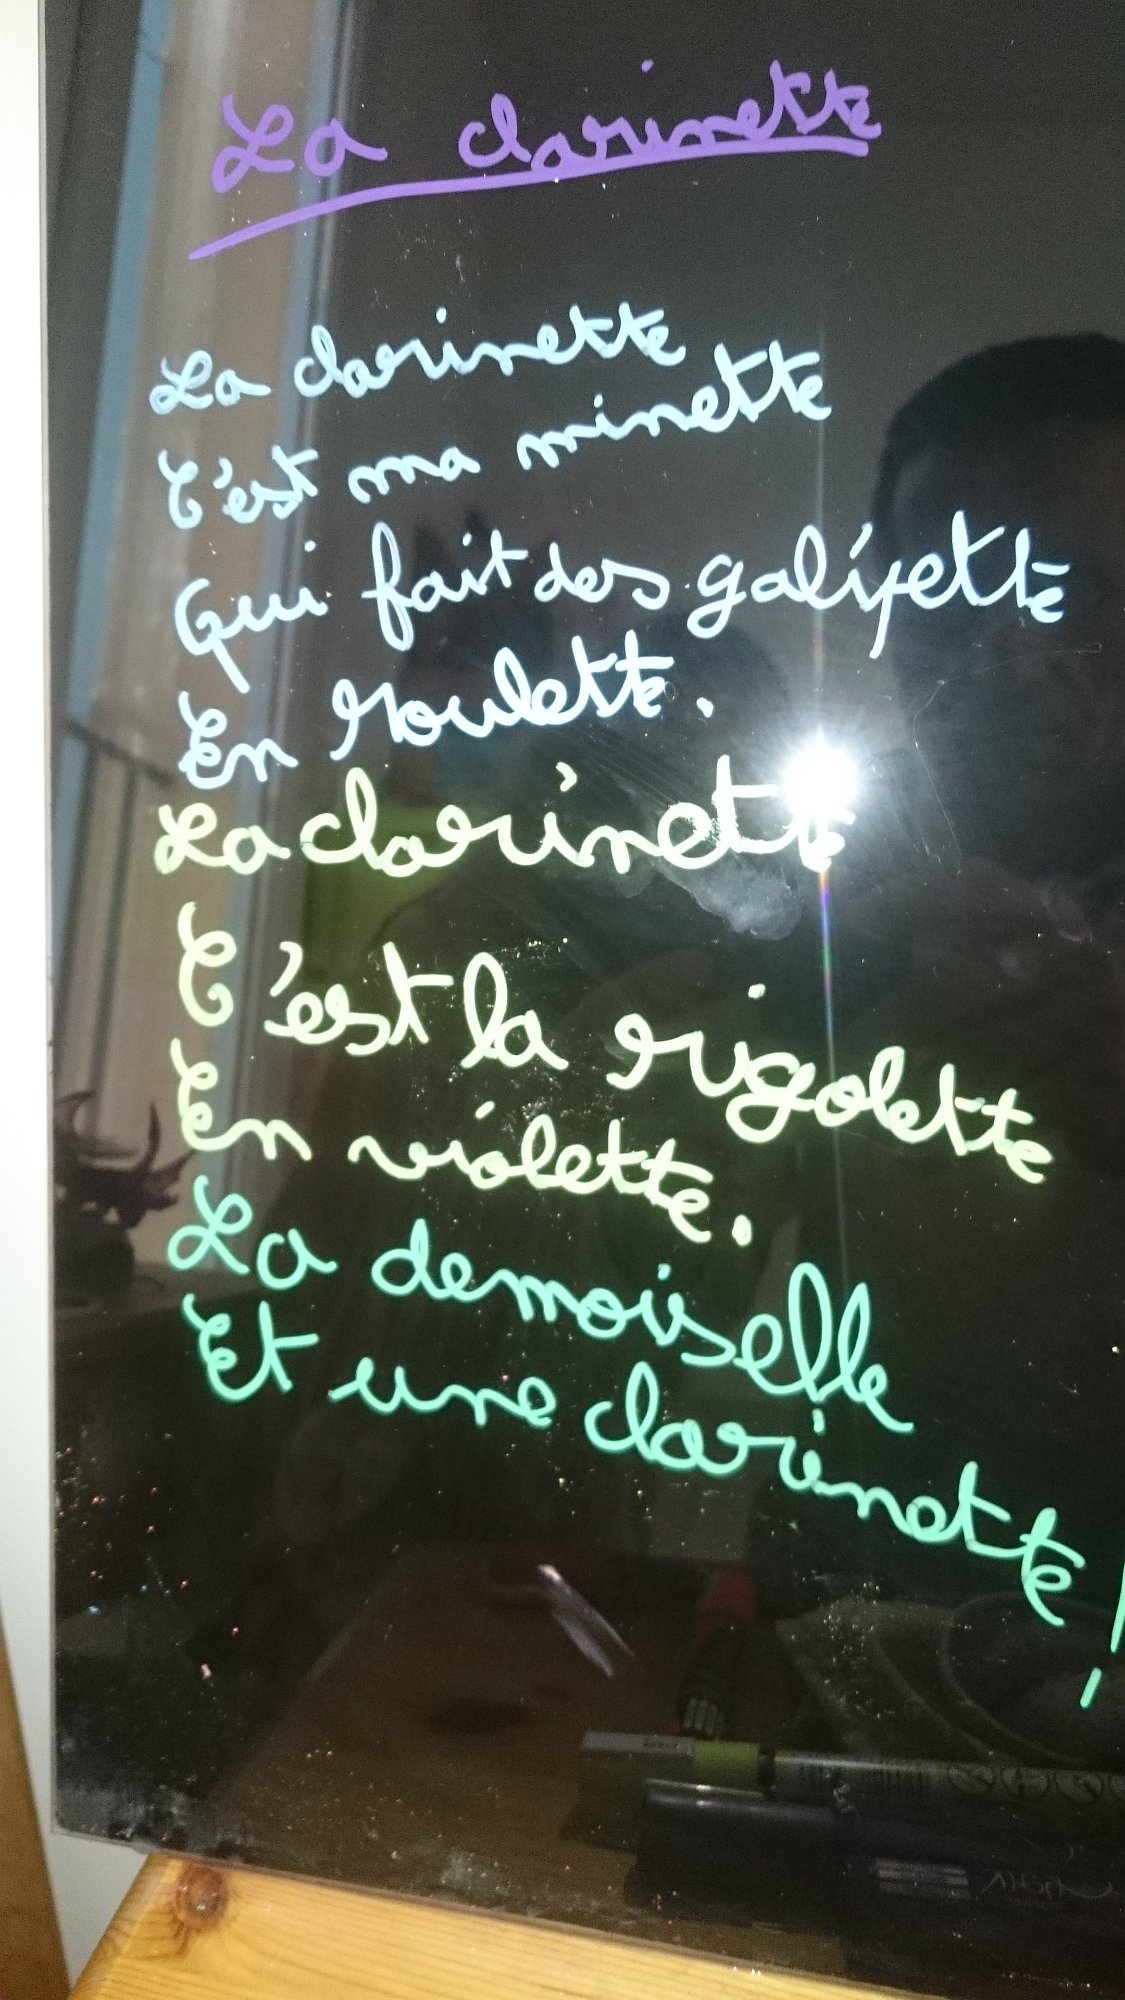 La clarinette
La clarinette
C'est ma minette
Qui fait des galiyette
En roulette.
La clarinette
C'est la rigolette
En violette.
La demoiselle
Et une clarinette !